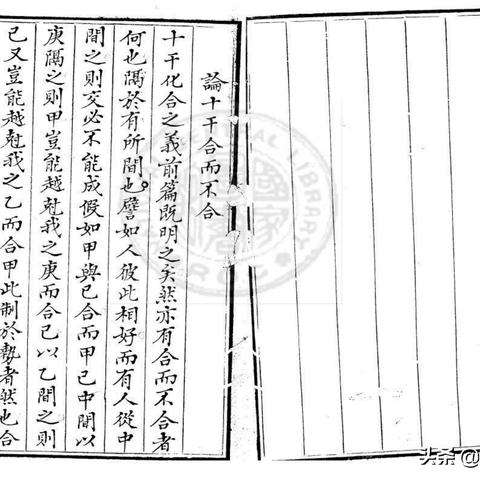 論十干合而不合
十干化合之義前篇既明之矣然亦有合而不合者
何也隔於有所間也譬如人彼此相好而有人從中
間之則交必不能成假如甲與己合而甲己中間以
庚隔之則甲豈能越尅我之庚而合己以乙間之則
己又豈能越尅我之乙而合甲此制於勢者然也合
頭条 @